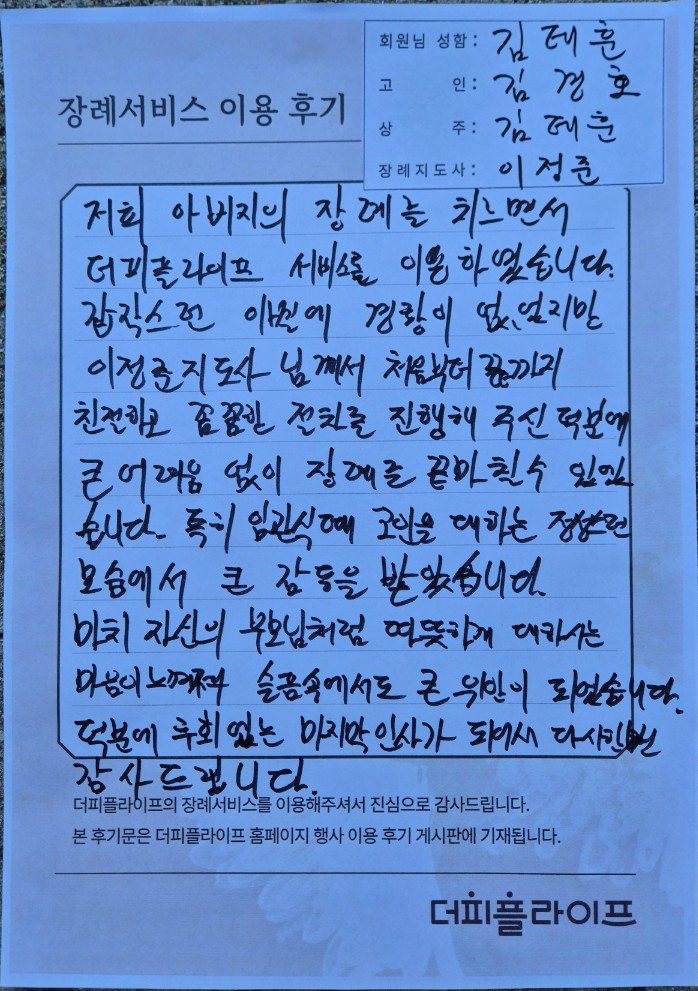 회원님 성함: 김태훈
고 인: 김경호
상 주: 김태훈
장례지도사: 이정준
장례서비스 이용 후기
저희 아버지의 장례를 치르면서
더피플라이프 서비스를 이용하였습니다.
갑작스런 이별에 경황이 없었지만
이정준지도사님께서 처음부터 끝까지
친절하고 꼼꼼한 절차를 진행해 주신 덕분에
큰 어려움 없이 장례를 끝마칠수 있었
습니다. 특히 입관식때 고인을 대하는 정성스런
모습에서 큰 감동을 받았습니다.
마치 자신의 부모님처럼 따뜻하게 대하시는
마음이 느껴져 슬픔속에서도 큰 위안이 되었습니다.
덕분에 후회없는 마지막인사가 되어서 다시한번
감사드립니다.
더피플라이프의 장례서비스를 이용해주셔서 진심으로 감사드립니다.
본 후기문은 더피플라이프 홈페이지 행사 이용 후기 게시판에 기재됩니다.
더피플라이프